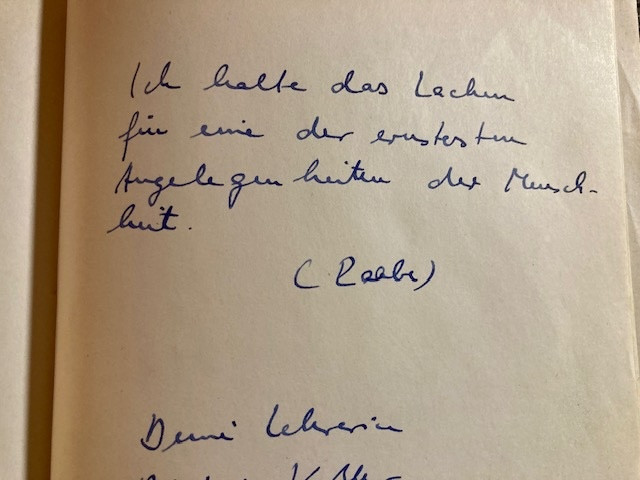 Ich halte das Lachen
für eine der ernstesten
Angelegenheiten der Mensch-
heit.
(Raabe)
Deine Lehrerin